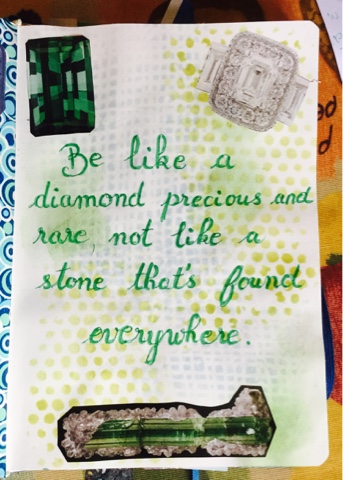 Be like a
diamond precious and
rare, not like a
stone that's found
everywhere.